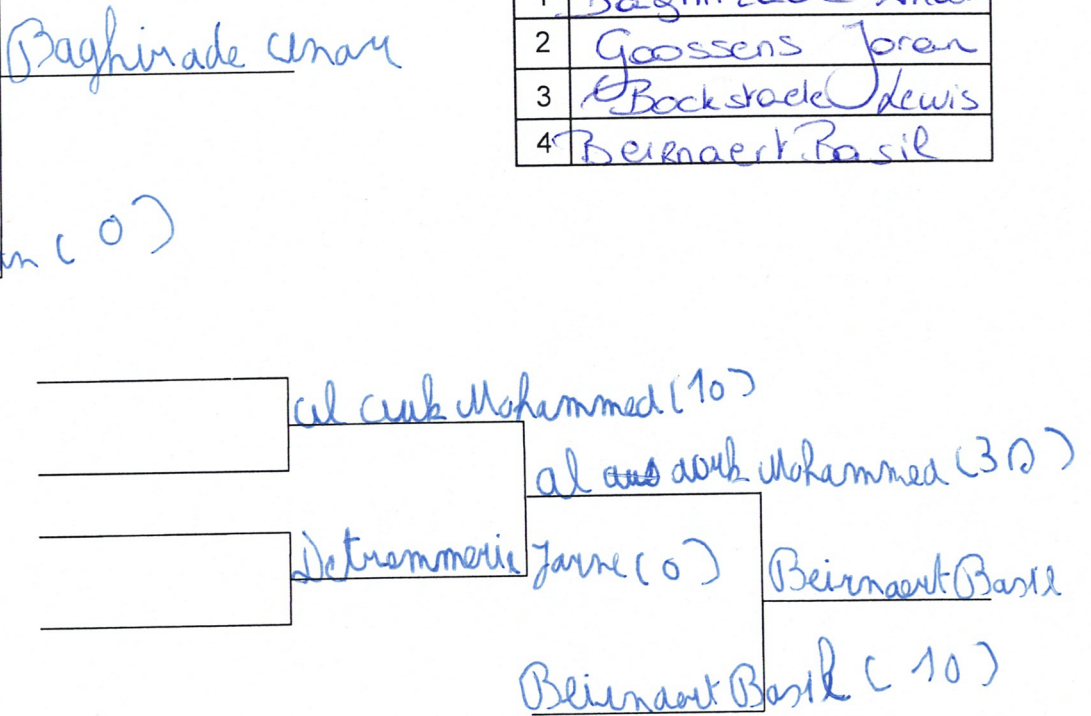 Baghirade
2 Goossens Joran
3 Bockstaele Lewis
4 Beirnaert Basil
(0)
al Mohammed (10)
al Mohammed (3
Detremmerie Jarne (0)
Beirnaert Basil
Beirnaert Basil (10)